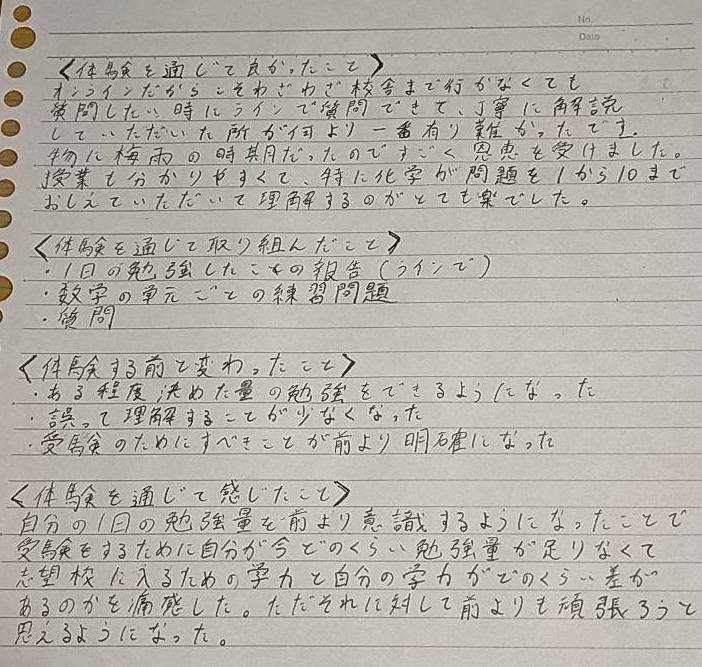 No.
Date
<体験を通じて良かったこと>
オンラインだからこそわざわざ校舎まで行かなくても
質問したい時にラインで質問できて、丁寧に解説
していただいた所が何より一番有り難かったです。
特に梅雨の時期だったのですごく恩恵を受けました。
授業も分かりやすくて、特に化学が問題を1から10まで
おしえていただいて理解するのがとても楽でした。
<体験を通じて取り組んだこと>
・1日の勉強したことの報告(ラインで)
・数学の単元ごとの練習問題
・質問
<体験する前と変わったこと>
・ある程度決めた量の勉強をできるようになった
・誤って理解することが少なくなった
・受験のためにすべきことが前より明確になった
<体験を通じて感じたこと>
自分の1日の勉強量を前より意識するようになったことで
受験をするために自分が今どのくらい勉強量が足りなくて
志望校に入るための学力と自分の学力がどのくらい差が
あるのかを痛感した。ただそれに対して前よりも頑張ろうと
思えるようになった。